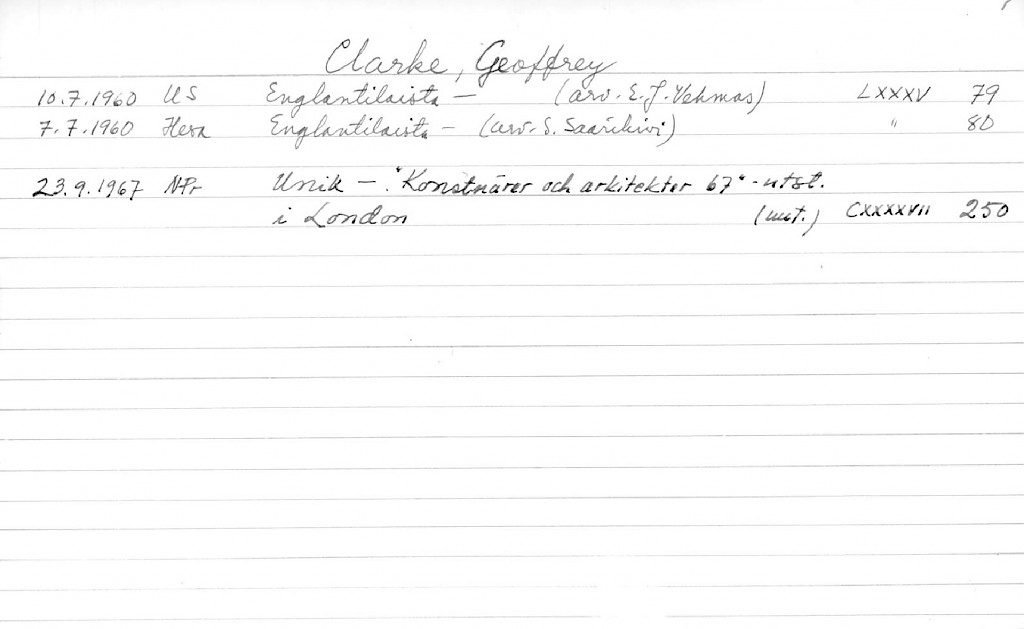 Clarke, Geoffrey
10.7.1960 US Englantilaista — (arv. E. J. Vehmas) LXXXV 79
7.7.1960 Hesa Englantilaista — (arv. S. Saarikivi) " 80
23.9.1967 NPr Unik — "Konstnärer och arkitekter 67"-utst.
i London (uut.) CXXXXVII 250